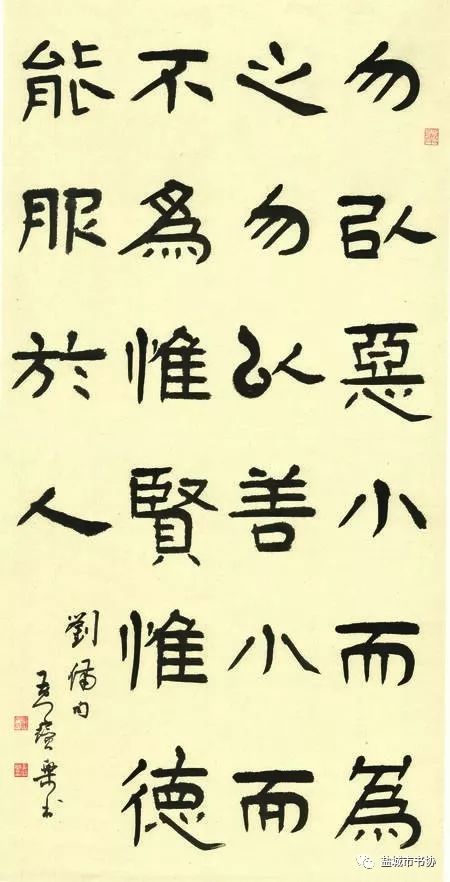 勿以惡小而為
之勿以善小而
不為惟賢惟德
能服於人
劉備句
樂書
盐城市书协